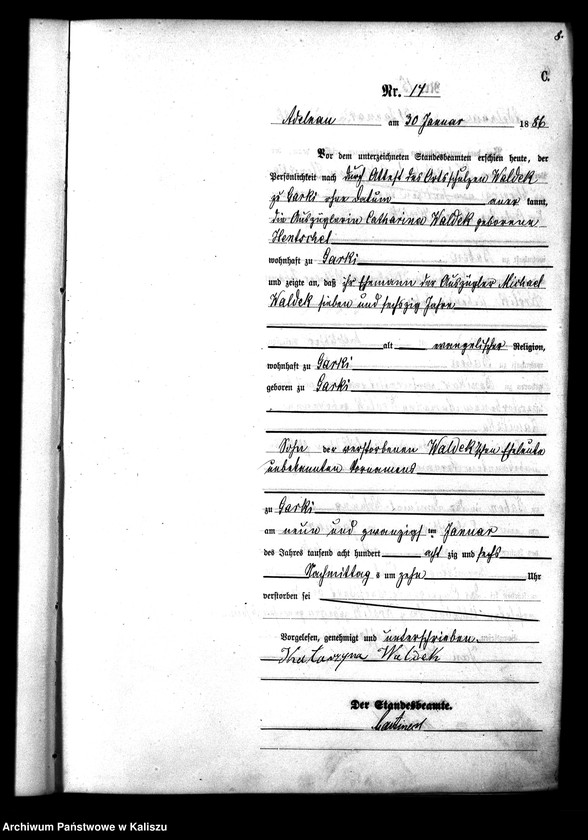 8.
C.
Nr. 14
Adelnau am 30 Januar 1886
Vor dem unterzeichneten Standesbeamten erschien heute, der
Persönlichkeit nach durch Attest des Ortsschulzen Waldek
zu Garki ohne Datum aner kannt,
die Auszüglerin Catharina Waldek geborene
Hentschel
wohnhaft zu Garki
und zeigte an, daß ihr Ehemann der Auszügler Michael
Waldek sieben und sechszig Jahre
alt evangelischer Religion,
wohnhaft zu Garki
geboren zu Garki
Sohn der verstorbenen Waldek'schen Eheleute
unbekannten Vornamens
zu Garki
am neun und zwanzigsten Januar
des Jahres tausend acht hundert acht zig und sechs
Nachmittag s um zehn Uhr
verstorben sei
Vorgelesen, genehmigt und unterschrieben.
Katarzyna Waldek
Der Standesbeamte.
Archiwum Państwowe w Kaliszu